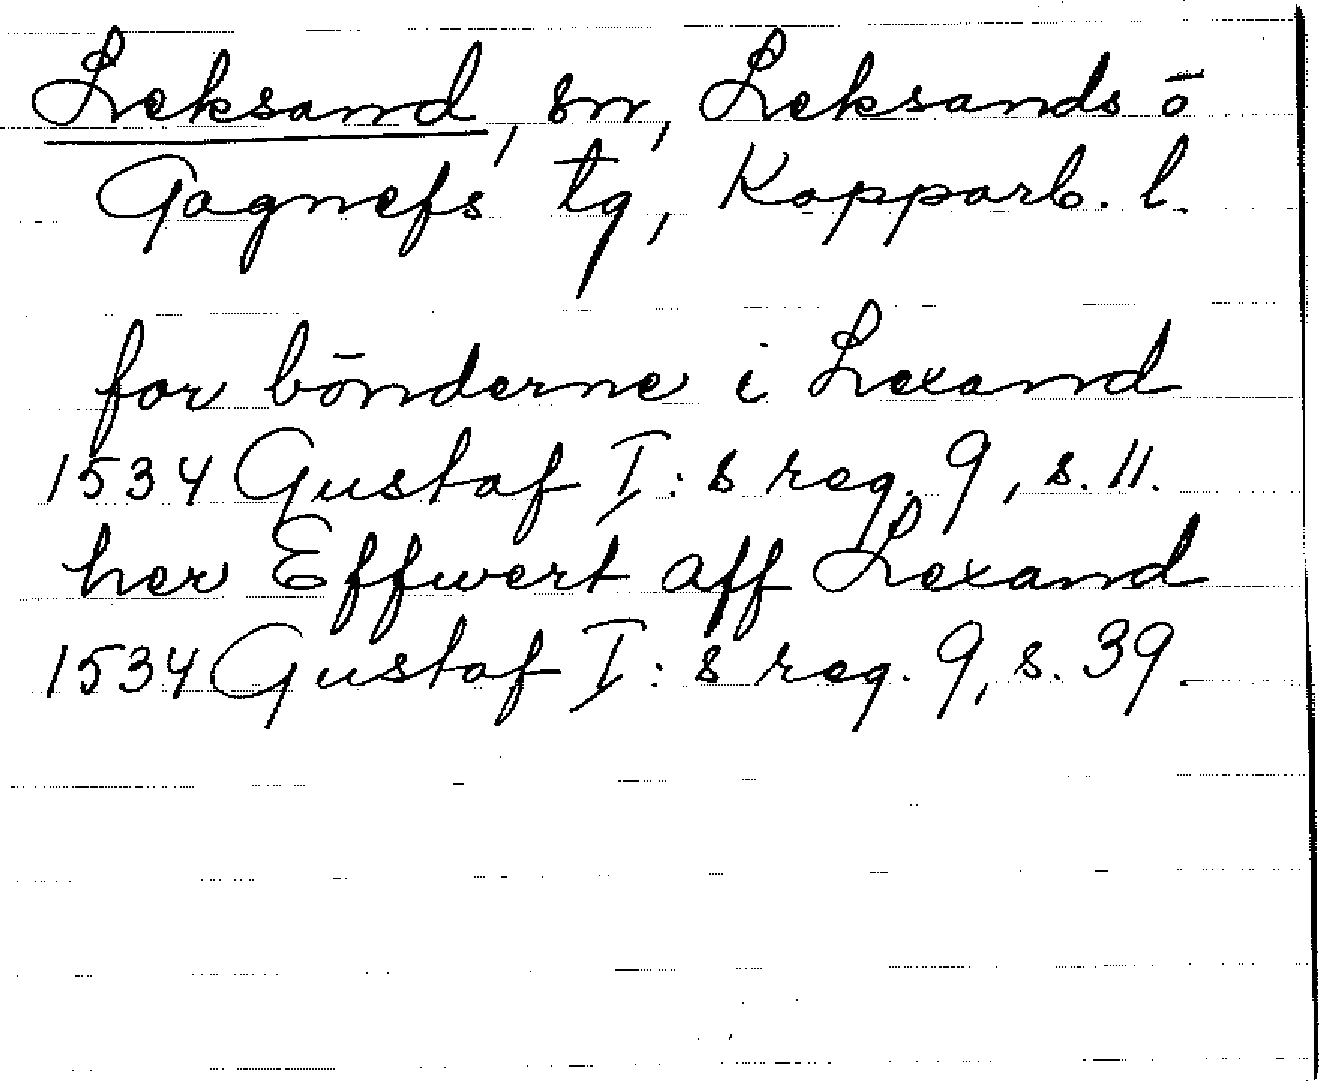 Leksand, sn, Leksands o
Gagnefs tg, Kopparb. l.
for bönderne i Lexand
1534 Gustaf I:s reg. 9, s. 11.
her Effwert aff Lexand
1534 Gustaf I:s reg. 9, s. 39